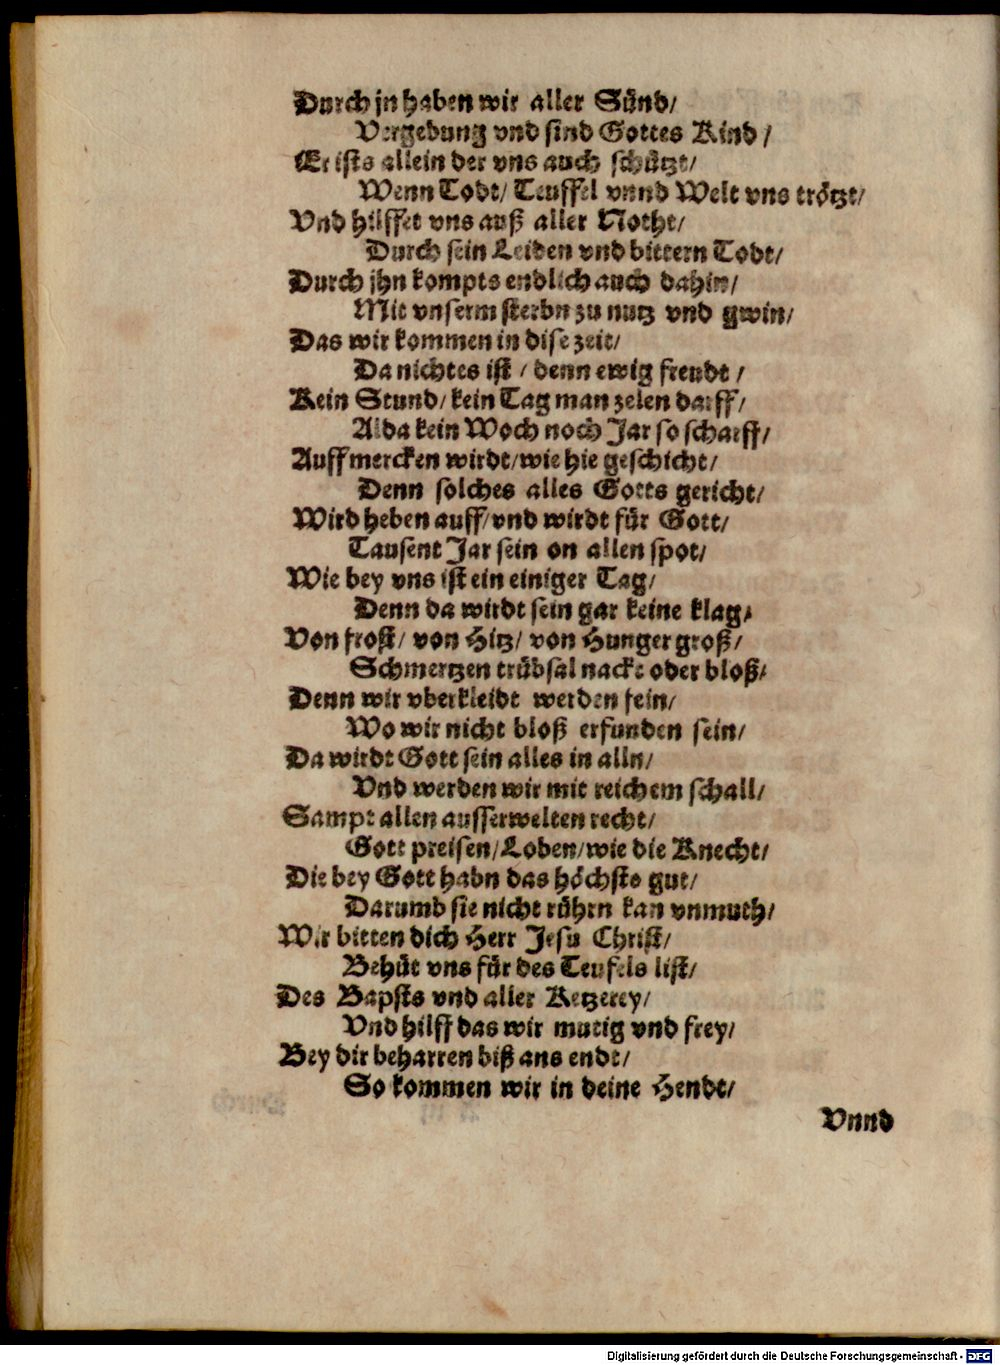 Durch jn haben wir aller Sünd/
Vergebung vnd sind Gottes Kind/
Er ists allein der vns auch schützt/
Wenn Todt/ Teuffel vnnd Welt vns trötzt/
Vnd hilffet vns auß aller Notht/
Durch sein Leiden vnd bittern Todt/
Durch jhn kompts endlich auch dahin/
Mit vnserm sterbn zu nutz vnd gwin/
Das wir kommen in dise zeit/
Da nichtes ist / denn ewig freudt /
Kein Stund/ kein Tag man zelen darff/
Alda kein Woch noch Jar so scharff/
Auffmercken wirdt/ wie hie geschicht/
Denn solches alles Gotts gericht/
Wird heben auff/ vnd wirdt für Gott/
Tausent Jar sein on allen spot/
Wie bey vns ist ein einiger Tag/
Denn da wirdt sein gar keine klag/
Von frost/ von Hitz/ von Hunger groß/
Schmertzen trübsal nackt oder bloß/
Denn wir vberkleidt werden fein/
Wo wir nicht bloß erfunden sein/
Da wirdt Gott sein alles in alln/
Vnd werden wir mit reichem schall/
Sampt allen ausserwelten recht/
Gott preisen/ Loben/ wie die Knecht/
Die bey Gott habn das höchste gut/
Darumb sie nicht rührn kan vnmuth/
Wir bitten dich Herr Jesu Christ/
Behüt vns für des Teufels list/
Des Bapsts vnd aller Ketzerey/
Vnd hilff das wir mutig vnd frey/
Bey dir beharren biß ans endt/
So kommen wir in deine Hendt/
Vnnd
Digitalisierung gefördert durch die Deutsche Forschungsgemeinschaft - DFG